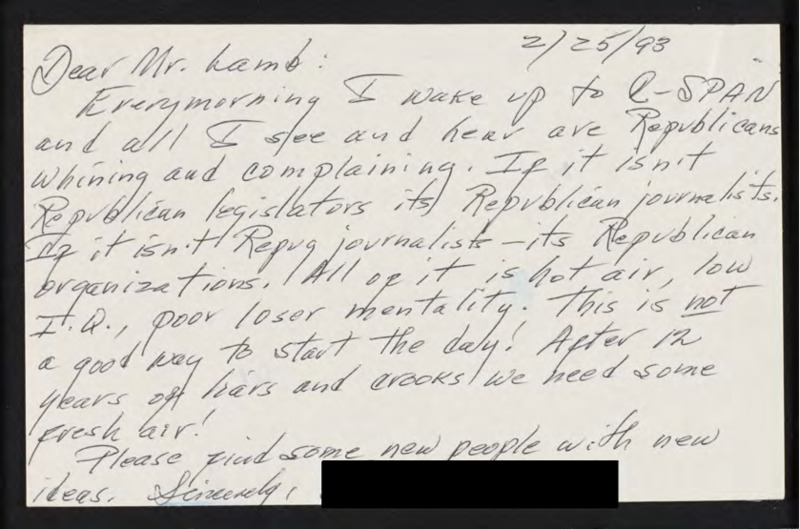 2/25/93
Dear Mr. Lamb:
Everymorning I wake up to C-SPAN
and all I see and hear are Republicans
whining and complaining. If it isn't
Republican legislators its Republican journalists.
If it isn't Repug journalists - its Republican
organizations. All of it is hot air, low
I.Q., poor loser mentality. This is not
a good way to start the day! After 12
years of liars and crooks we need some
fresh air!
Please find some new people with new
ideas. Sincerely,